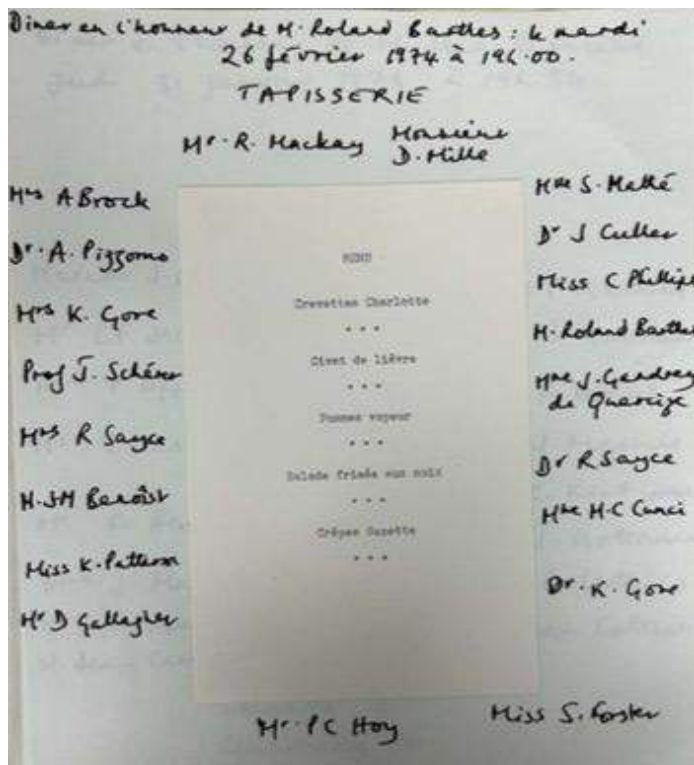 Diner en l'honneur de M. Roland Barthes : le mardi
26 février 1974 à 19h.00.
TAPISSERIE
Mr. R. Mackay
Monsieur
D. Mille
Mrs A Brock
Dr. A. Pizzorno
Mrs K. Gore
Prof J. Schérer
Mrs R Sayce
M. JM Benoîst
Miss K. Patterson
Mr D Gallagher
MENU
Crevettes Charlotte
* * *
Civet de lièvre
* * *
Pommes vapeur
* * *
Salade frisée aux noix
* * *
Crêpes Suzette
* * *
Mme S. Mathé
Dr J Culler
Miss C Phillips
M. Roland Barthes
Mme J. Gaudrey
de Quercize
Dr R Sayce
Mme M-C
Dr. K. Gore
Mr. PC Hoy
Miss S. Forster